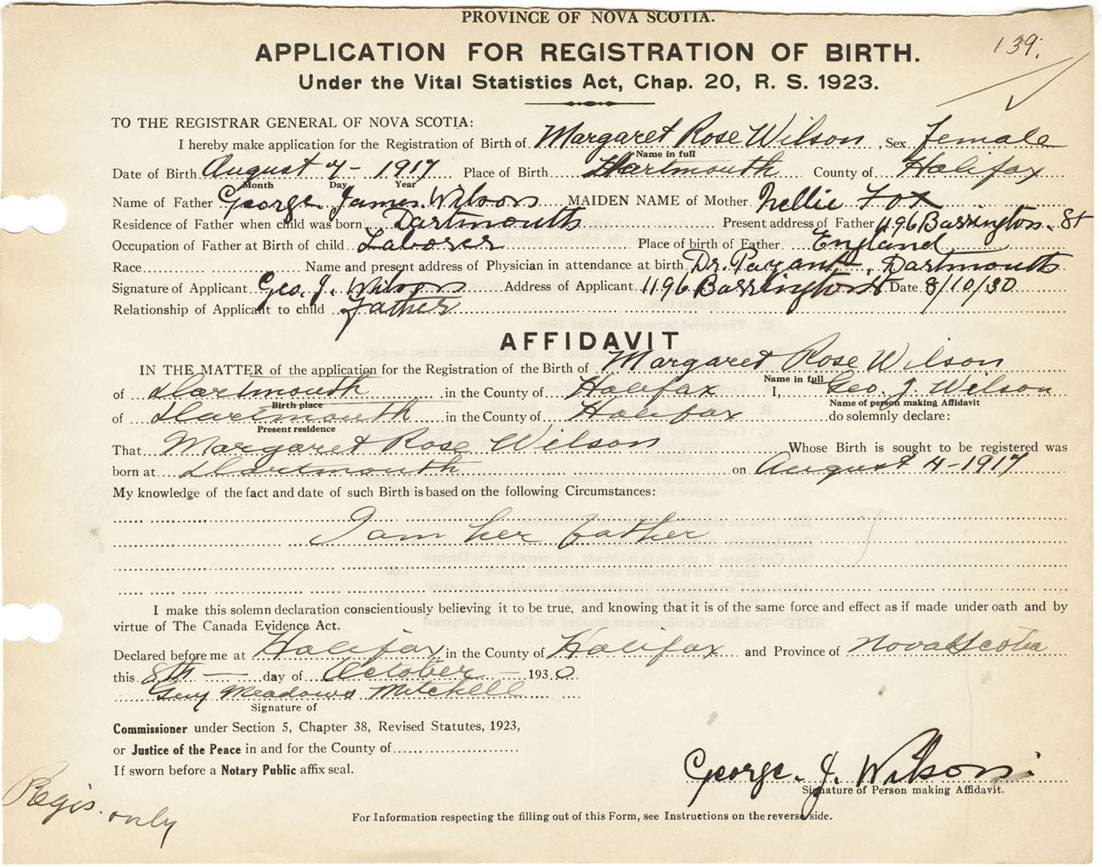 PROVINCE OF NOVA SCOTIA.
139.
APPLICATION FOR REGISTRATION OF BIRTH.
Under the Vital Statistics Act, Chap. 20, R. S. 1923.
TO THE REGISTRAR GENERAL OF NOVA SCOTIA:
I hereby make application for the Registration of Birth of Margaret Rose Wilson, Sex Female
Name in full
Date of Birth August 4 - 1917 Place of Birth Dartmouth County of Halifax
Month Day Year
Name of Father George James Wilson MAIDEN NAME of Mother Nellie Fox
Residence of Father when child was born Dartmouth Present address of Father 1196 Barrington St
Occupation of Father at Birth of child Laborer Place of birth of Father England
Race Name and present address of Physician in attendance at birth Dr. Payant, Dartmouth
Signature of Applicant Geo. J. Wilson Address of Applicant 1196 Barrington St Date 8/10/30
Relationship of Applicant to child father
AFFIDAVIT
IN THE MATTER of the application for the Registration of the Birth of Margaret Rose Wilson
Name in full
of Dartmouth in the County of Halifax I, Geo. J. Wilson
Birth place Name of person making Affidavit
of Dartmouth in the County of Halifax do solemnly declare:
Present residence
That Margaret Rose Wilson Whose Birth is sought to be registered was
born at Dartmouth on August 4 - 1917
My knowledge of the fact and date of such Birth is based on the following Circumstances:
I am her father
I make this solemn declaration conscientiously believing it to be true, and knowing that it is of the same force and effect as if made under oath and by
virtue of The Canada Evidence Act.
Declared before me at Halifax in the County of Halifax and Province of Nova Scotia
this 8th day of October 1930
Meadows Mitchell
Signature of
Commissioner under Section 5, Chapter 38, Revised Statutes, 1923,
or Justice of the Peace in and for the County of
If sworn before a Notary Public affix seal.
George. J. Wilson.
Signature of Person making Affidavit.
Regis. only
For Information respecting the filling out of this Form, see Instructions on the reverse side.